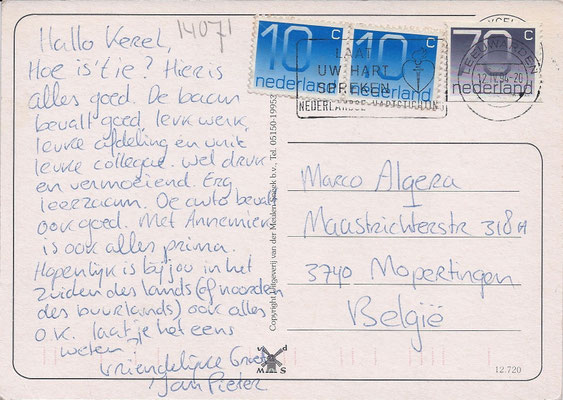 14071
Hallo Kerel,
Hoe is 't ie? Hier is
alles goed. De baan
bevalt goed, leuk werk,
leuke afdeling en
leuke collega. Wel druk
en vermoeiend. Erg
leerzaam. De auto bevalt
ook goed. Met Annemiek
is ook alles prima.
Hopenlijk is bij jou in het
zuiden des lands (of noorden
des buurlands) ook alles
O.K. laat je het eens
weten?
Vriendelijke Groet
Jan Pieter
Copyright Uitgeverij van der Meulen Sneek b.v., Tel. 05150-19953
10 c
nederland
10 c
nederland
70 c
nederland
LAAT
UW HART
SPREKEN
NEDERLANDSE HARTSTICHTING
LEEUWARDEN
Marco Algera
Maastrichterstr 318A
3740 Mopertingen
België
v d
M S
12.720